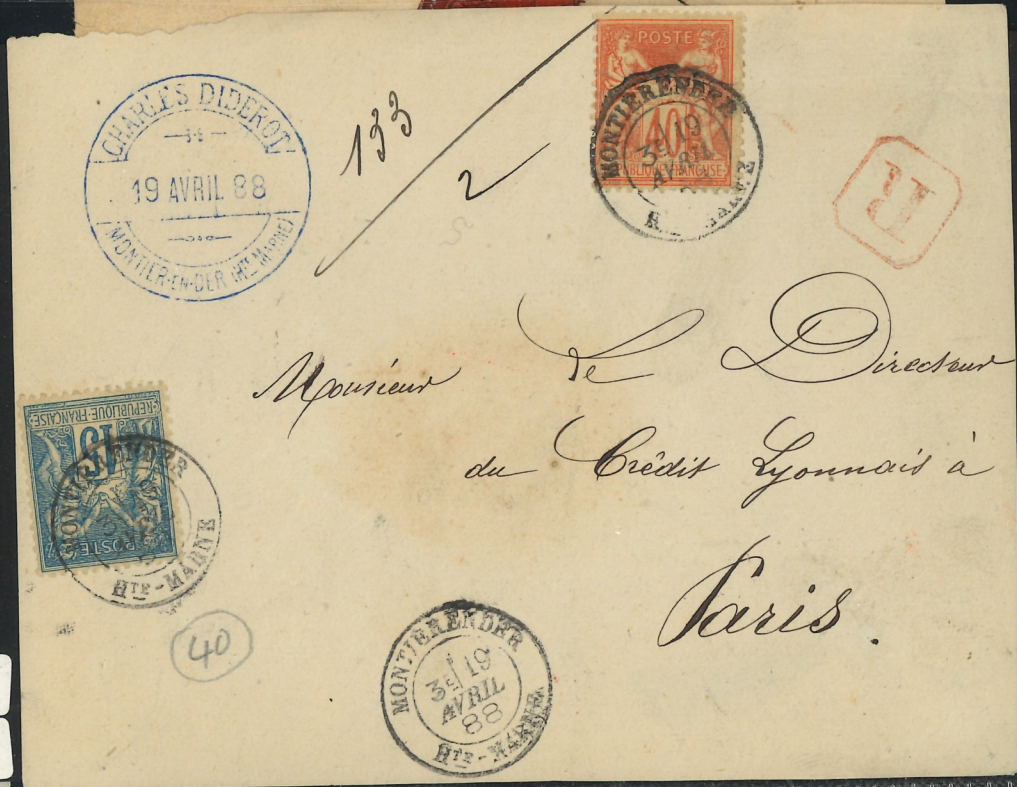 CHARLES DIDEROT
19 AVRIL 88
MONTIER-EN-DER (HTE MARNE)
133
2
POSTE
40
RÉPUBLIQUE FRANÇAISE
MONTIERENDER
3E 19
AVRIL
HTE-MARNE
R
Monsieur Le Directeur
du Crédit Lyonnais à
Paris.
REPUBLIQUE-FRANÇAISE
15
POSTE
MONTIERENDER
HTE-MARNE
40
MONTIERENDER
3E 19
AVRIL
88
HTE-MARNE